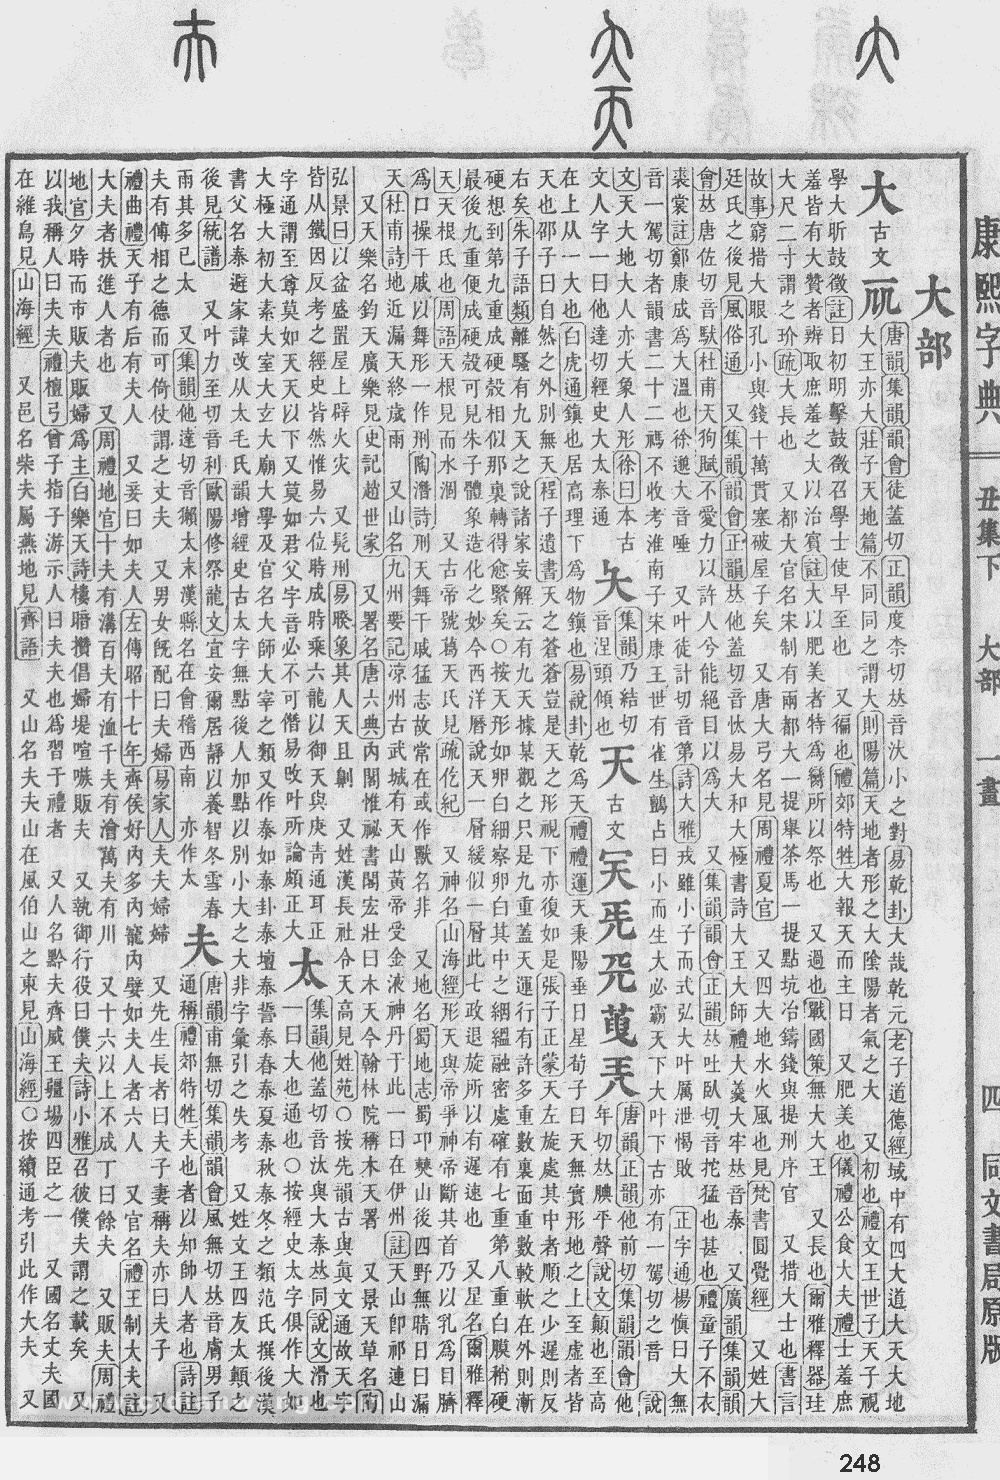 康熙字典 丑集下 大部 一畫 四 同文書局原版
大部
大 古文 唐韻集韻韻會徒蓋切正韻度柰切𠀤音汏小之對易乾卦大哉乾元老子道德經域中有四大道大天大地
大王亦大莊子天地篇不同同之謂大則陽篇天地者形之大陰陽者氣之大 又初也禮文王世子天子視
學大昕鼓徵註日初明擊鼓徵召學士使早至也 又徧也禮郊特牲大報天而主日 又肥美也儀禮公食大夫禮士羞庶
羞皆有大贊者辨取庶羞之大以治賓註大以肥美者特為臠所以祭也 又過也戰國策無大大王 又長也爾雅釋器珪
大尺二寸謂之玠疏大長也 又都大官名宋制有兩都大一提舉茶馬一提點坑冶鑄錢與提刑序官 又措大士也書言
故事窮措大眼孔小與錢十萬貫塞破屋子矣 又唐大弓名見周禮夏官 又四大地水火風也見梵書圓覺經 又姓大
廷氏之後見風俗通 又集韻韻會正韻𠀤他蓋切音忲易大和大極書詩大王大師禮大羹大牢𠀤音泰 又廣韻集韻韻
會𠀤唐佐切音馱杜甫天狗賦不愛力以許人兮能絕目以為大 又集韻韻會正韻𠀤吐臥切音拕猛也甚也禮童子不衣
裘裳註鄭康成為大溫也徐邈大音唾 又叶徒計切音第詩大雅戎雖小子而式弘大叶厲泄愒敗 正字通楊慎曰大無
音一駕切者韻書二十二禡不收考淮南子宋康王世有雀生鸇占曰小而生大必霸天下大叶下古亦有一駕切之音 說
文天大地大人亦大象人形徐曰本古
文人字一曰他達切經史大太泰通 夨 集韻乃結切音涅頭傾也 天 古文 兲 唐韻正韻他前切集韻韻會他
年切𠀤腆平聲說文顚也至高
在上从一大也白虎通鎮也居高理下為物鎮也易說卦乾為天禮禮運天秉陽垂日星荀子曰天無實形地之上至虛者皆
天也邵子曰自然之外別無天程子遺書天之蒼蒼豈是天之形視下亦復如是張子正蒙天左旋處其中者順之少遲則反
右矣朱子語類離騷有九天之說諸家妄解云有九天據某觀之只是九重蓋天運行有許多重數裏面重數較軟在外則漸
硬想到第九重成硬殼相似那裏轉得愈緊矣○按天形如卵白細察卵白其中之絪縕融密處確有七重第八重白膜稍硬
最後九重便成硬殼可見朱子體象造化之妙今西洋曆說天一層緩似一層此七政退旋所以有遲速也 又星名爾雅釋
天天根氐也周語天根見而水涸 又古帝號葛天氏見疏仡紀 又神名山海經形天與帝爭神帝斷其首乃以乳為目臍
為口操干戚以舞形一作刑陶潛詩刑天舞干戚猛志故常在或作獸名非 又地名蜀地志蜀卭僰山後四野無晴日曰漏
天杜甫詩地近漏天終歲雨 又山名九州要記凉州古武城有天山黃帝受金液神丹于此一曰在伊州註天山卽祁連山
又天樂名鈞天廣樂見史記趙世家 又署名唐六典內閣惟祕書閣宏壯曰木天今翰林院稱木天署 又景天草名南
弘景曰以盆盛置屋上辟火灾 又髡刑易睽象其人天且劓 又姓漢長社令天高見姓苑○按先韻古與眞文通故天字
皆从鐵因反考之經史皆然惟易六位時成時乘六龍以御天與庚靑通耳正
字通謂至尊莫如天天以下又莫如君父字音必不可僭易攺叶所論頗正大 太 集韻他蓋切音汰與大泰𠀤同說文滑也
一曰大也通也○按經史太字俱作大如
大極大初大素大室大玄大廟大學及官名大師大宰之類又作泰如泰卦泰壇泰誓泰春泰夏泰秋泰冬之類范氏撰後漢
書父名泰避家諱改从太毛氏韻增經史古太字無點後人加點以別小大之大非字彙引之失考 又姓文王四友太顚之
後見統譜 又叶力至切音利歐陽修祭龍文宜安爾居靜以養智冬雪春
雨其多已太 又集韻他達切音獺太末漢縣名在會稽西南 亦作太 夫 唐韻甫無切集韻韻會風無切𠀤音膚男子
通稱禮郊特牲夫也者以知帥人者也詩註
夫有傳相之德而可倚仗謂之丈夫 又男女旣配曰夫婦易家人夫夫婦婦 又先生長者曰夫子妻稱夫亦曰夫子 又
禮曲禮天子有后有夫人 又妾曰如夫人左傳昭十七年齊侯好內多內寵內嬖如夫人者六人 又官名禮王制大夫註
大夫者扶進人者也 又周禮地官十夫有溝百夫有洫千夫有澮萬夫有川 又十六以上不成丁曰餘夫 又販夫周禮
地官夕時而市販夫販婦為主白樂天詩樓暗攢倡婦堤喧嗾販夫 又執御行役曰僕夫詩小雅召彼僕夫謂之載矣 又
以我稱人曰夫夫禮檀弓曾子指子游示人曰夫夫也為習于禮者 又人名黔夫齊威王疆場四臣之一 又國名丈夫國
在維鳥見山海經 又邑名柴夫屬燕地見齊語 又山名夫夫山在風伯山之東見山海經○按續通考引此作大夫 又
248